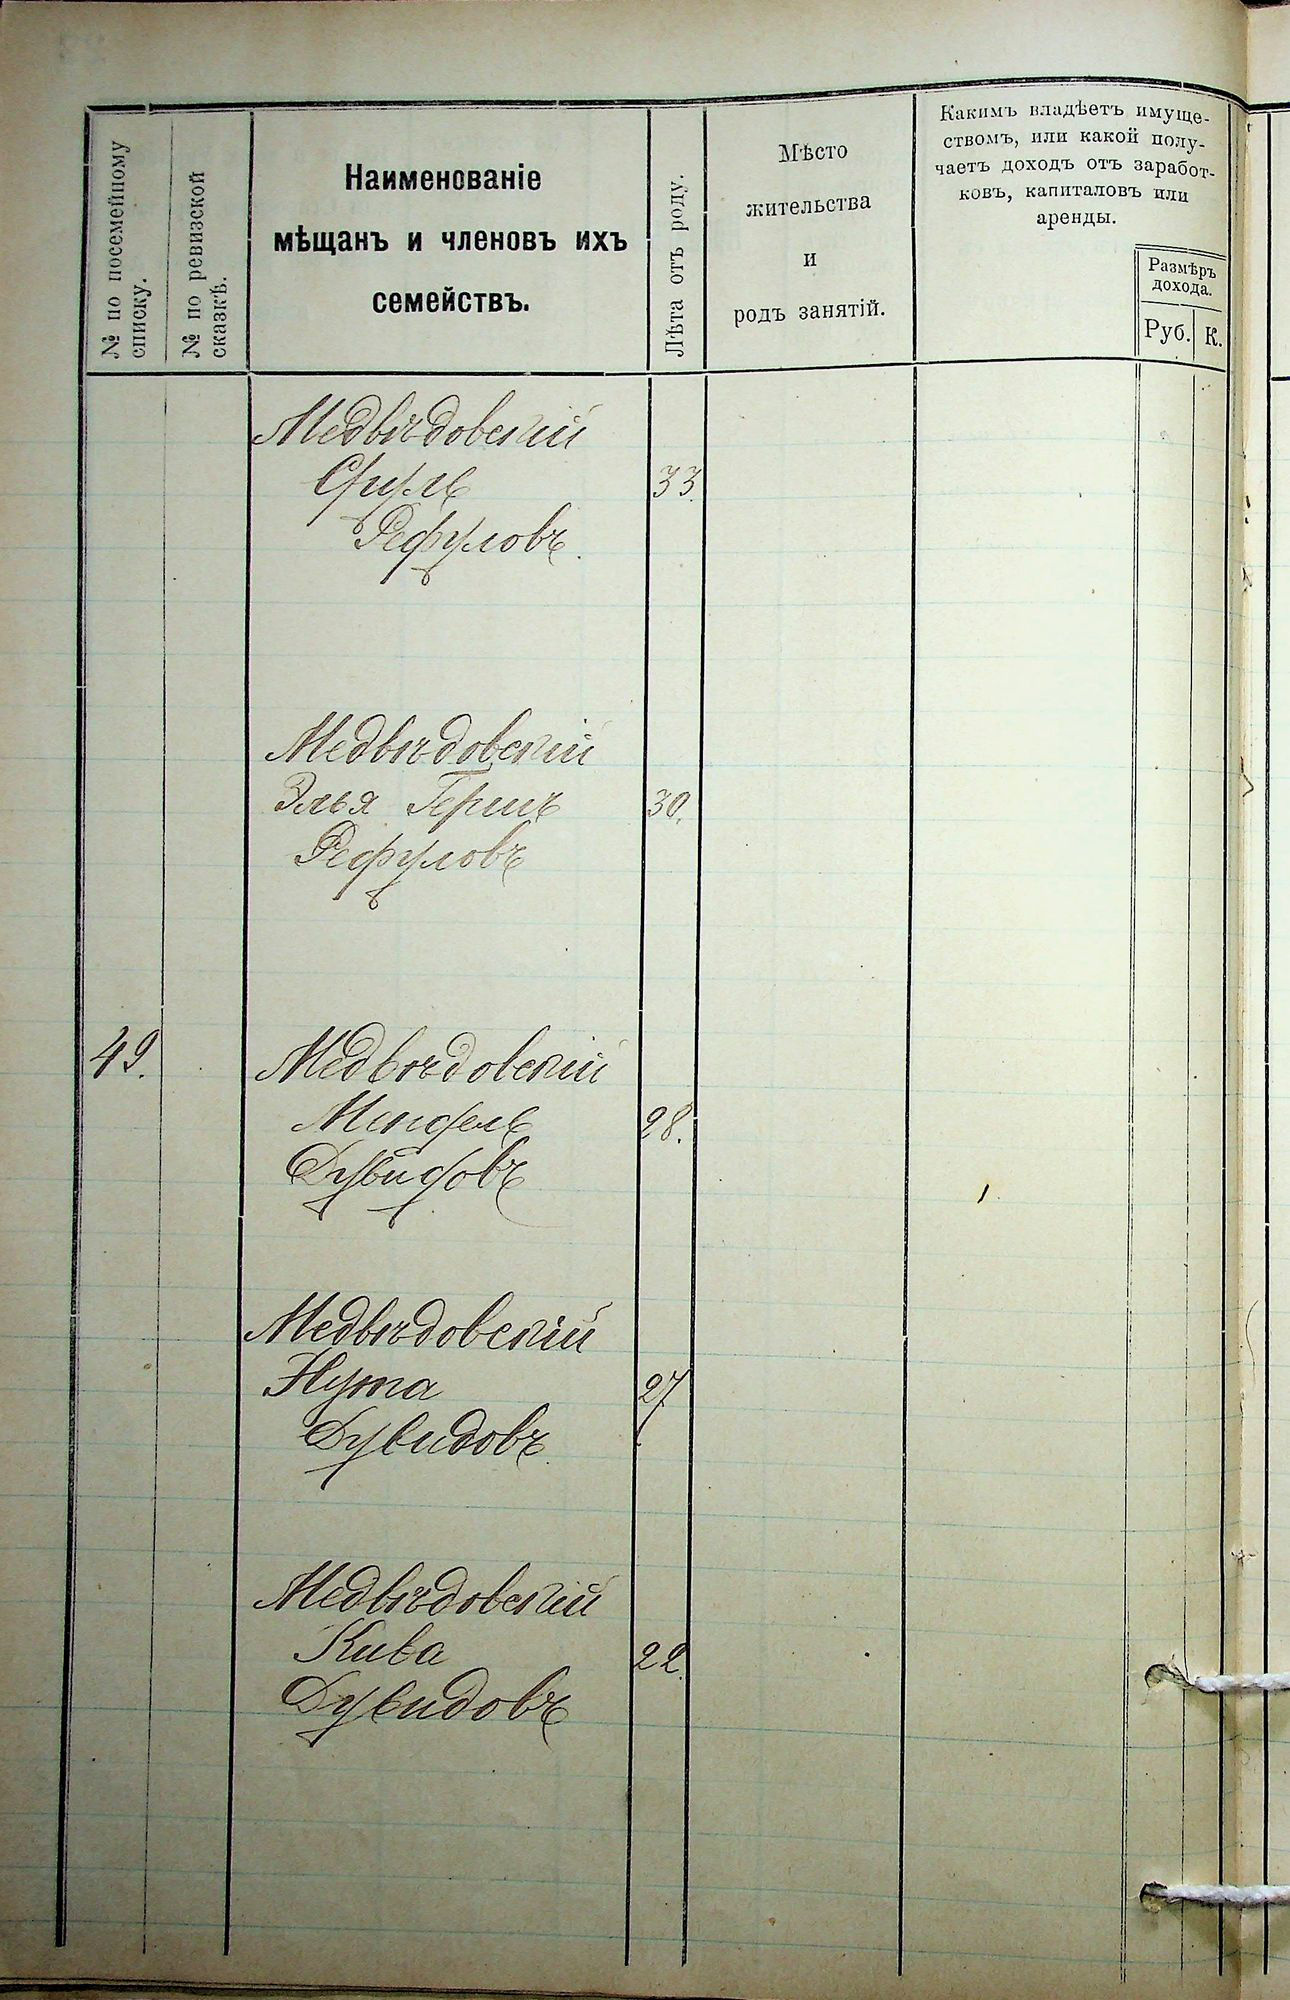 № по посемейному
списку.
№ по ревизской
сказкѣ.
Наименованіе
мѣщанъ и членовъ ихъ
семействъ.
Лѣта отъ роду.
Мѣсто
жительства
и
родъ занятій.
Какимъ владѣетъ имуще-
ствомъ, или какой полу-
чаетъ доходъ отъ заработ-
ковъ, капиталовъ или
аренды.
Размѣръ
дохода.
Руб. К.
Медвѣдовскій
Сруль 33.
Рефуловъ.
Медвѣдовскій
Элья Гершъ 30.
Рефуловъ
49. Медвѣдовскій
Мендель 28.
Дувидовъ
Медвѣдовскій
Нута 27.
Дувидовъ.
Медвѣдовскій
Кива 22.
Дувидовъ